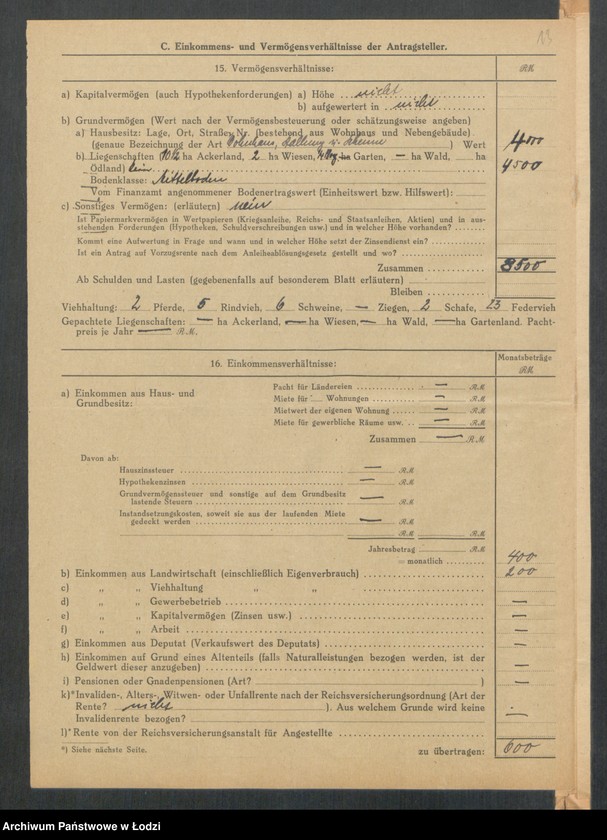 13
C. Einkommens- und Vermögensverhältnisse der Antragsteller.
15. Vermögensverhältnisse:
RM
a) Kapitalvermögen (auch Hypothekenforderungen) a) Höhe nicht
b) aufgewertet in nicht
b) Grundvermögen (Wert nach der Vermögensbesteuerung oder schätzungsweise angeben)
a) Hausbesitz: Lage, Ort, Straße, Nr. (bestehend aus Wohnhaus und Nebengebäude)
(genaue Bezeichnung der Art Wohnhaus, Stallung u. Scheune) Wert 4000
b) Liegenschaften 10½ ha Ackerland, 2 ha Wiesen, ha Garten, — ha Wald, ha 4500
Ödland) kein
Bodenklasse: Mittelboden
Vom Finanzamt angenommener Bodenertragswert (Einheitswert bzw. Hilfswert):
c) Sonstiges Vermögen: (erläutern) nein
Ist Papiermarkvermögen in Wertpapieren (Kriegsanleihe, Reichs- und Staatsanleihen, Aktien) und in aus-
stehenden Forderungen (Hypotheken, Schuldverschreibungen usw.) und in welcher Höhe vorhanden?
Kommt eine Aufwertung in Frage und wann und in welcher Höhe setzt der Zinsendienst ein?
Ist ein Antrag auf Vorzugsrente nach dem Anleiheablösungsgesetz gestellt und wo?
Zusammen 8500
Ab Schulden und Lasten (gegebenenfalls auf besonderem Blatt erläutern)
Bleiben
Viehhaltung: 2 Pferde, 5 Rindvieh, 6 Schweine, — Ziegen, 2 Schafe, 23 Federvieh
Gepachtete Liegenschaften: — ha Ackerland, — ha Wiesen, — ha Wald, — ha Gartenland. Pacht-
preis je Jahr — RM.
16. Einkommensverhältnisse:
Monatsbeträge
RM
a) Einkommen aus Haus- und
Grundbesitz:
Pacht für Ländereien — RM
Miete für Wohnungen — RM
Mietwert der eigenen Wohnung — RM
Miete für gewerbliche Räume usw. — RM
Zusammen — RM
Davon ab:
Hauszinssteuer — RM
Hypothekenzinsen — RM
Grundvermögenssteuer und sonstige auf dem Grundbesitz
lastende Steuern — RM
Instandsetzungskosten, soweit sie aus der laufenden Miete
gedeckt werden — RM
RM RM
Jahresbetrag RM
= monatlich 400
b) Einkommen aus Landwirtschaft (einschließlich Eigenverbrauch) 200
c) „ „ Viehhaltung „ „
d) „ „ Gewerbebetrieb —
e) „ „ Kapitalvermögen (Zinsen usw.) —
f) „ „ Arbeit —
g) Einkommen aus Deputat (Verkaufswert des Deputats) —
h) Einkommen auf Grund eines Altenteils (falls Naturalleistungen bezogen werden, ist der
Geldwert dieser anzugeben) —
i) Pensionen oder Gnadenpensionen (Art? ) —
k)*Invaliden-, Alters-, Witwen- oder Unfallrente nach der Reichsversicherungsordnung (Art der
Rente? nicht ). Aus welchem Grunde wird keine
Invalidenrente bezogen? —
l)*Rente von der Reichsversicherungsanstalt für Angestellte
*) Siehe nächste Seite.
zu übertragen: 600
Archiwum Państwowe w Łodzi